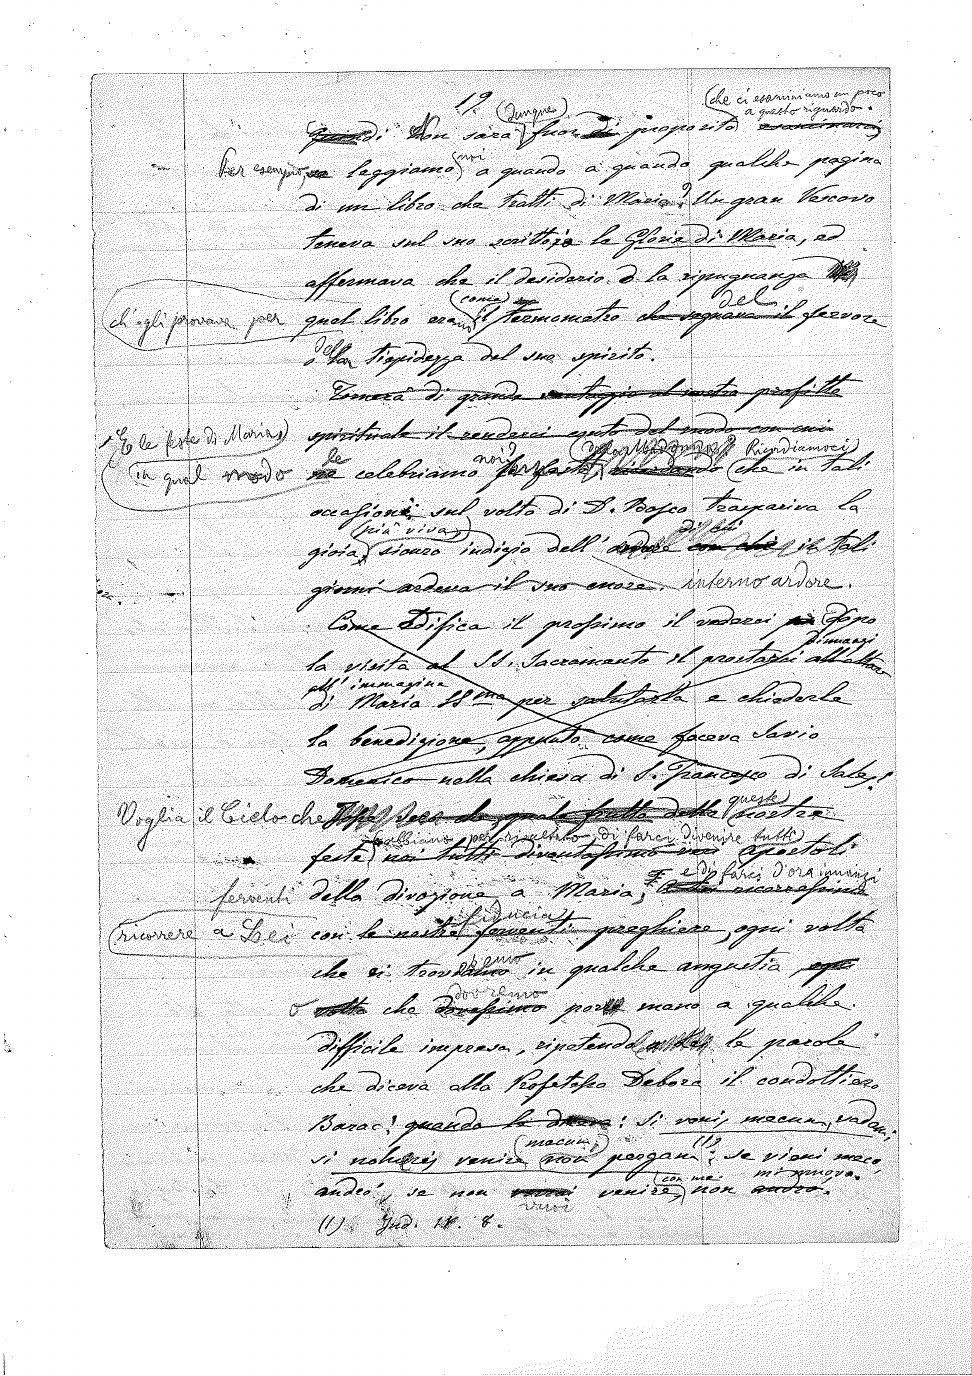 19.
(che ci esaminiamo un poco
a questo riguardo.
(dunque)
Quindi Non sarà fuor di proposito esaminarci,
Per esempio, se leggiamo noi a quando a quando qualche pagina
di un libro che tratti di Maria? Un gran Vescovo
teneva sul suo scrittoio le Glorie di Maria, ed
affermava che il desiderio o la ripugnanza
(come) del
ch'egli provava per quel libro erano il termometro che segnava il fervore
o della tiepidezza del suo spirito.
Tornerà di grande vantaggio al nostro profitto
E le feste di Maria, spirituale il renderci conto del modo con cui
noi? Ricordiamoci
in qual modo le celebriamo che in tali
occasioni sul volto di D. Bosco traspariva la
(più viva,) di chi
gioia, sicuro indizio dell'ardore con che in tali
giorni ardeva il suo cuore. interno ardore.
Come Edifica il prossimo il vederci dopo
dinnanzi
la visita al SS. Sacramento il prostarci all'altare
all'immagine
di Maria SSma per salutarla e chiederle
la benedizione, appunto come faceva Savio
Domenico nella chiesa di S. Francesco di Sales!
queste
Voglia il Cielo che quale frutto delle nostre
abbiano per risultato di farci divenire tutti
feste noi tutti diventassimo apostoli
e di farci d'ora innanzi
ferventi della divozione a Maria; ricorressimo
fiducia
ricorrere a Lei con le nostre ferventi preghiere, ogni volta
che ci troveremo in qualche angustia, ogni
dovremo
o volta che dovessimo porre mano a qualche
difficile impresa, ripetendo le parole
che diceva alla Profetessa Debora il condottiero
Barac: quando le diceva: Si venis mecum, vadam;
(mecum,) (1)
si nolueris venire non pergam; se vieni meco,
con me mi muovo.
andrò, se non venire, non andrò.
vuoi
(1) Jud. IV. 8.